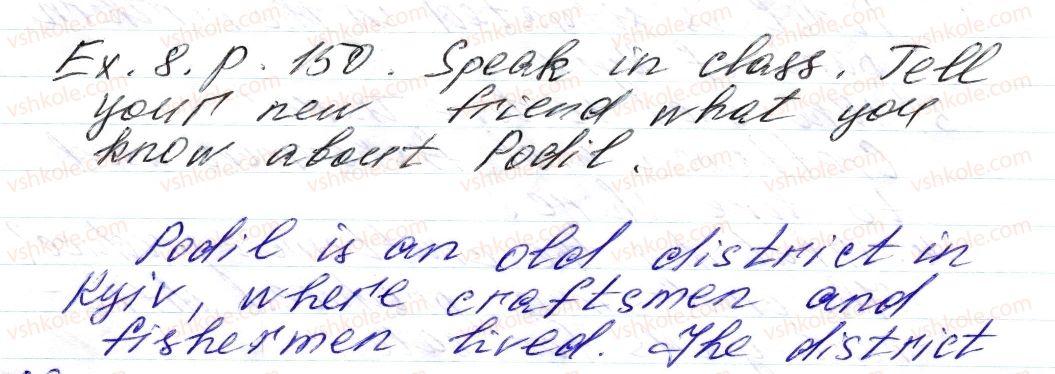 Ex. 8. p. 150. Speak in class. Tell
your new friend what you
know about Podil.
Podil is an old district in
Kyiv, where craftsmen and
fishermen lived. The district